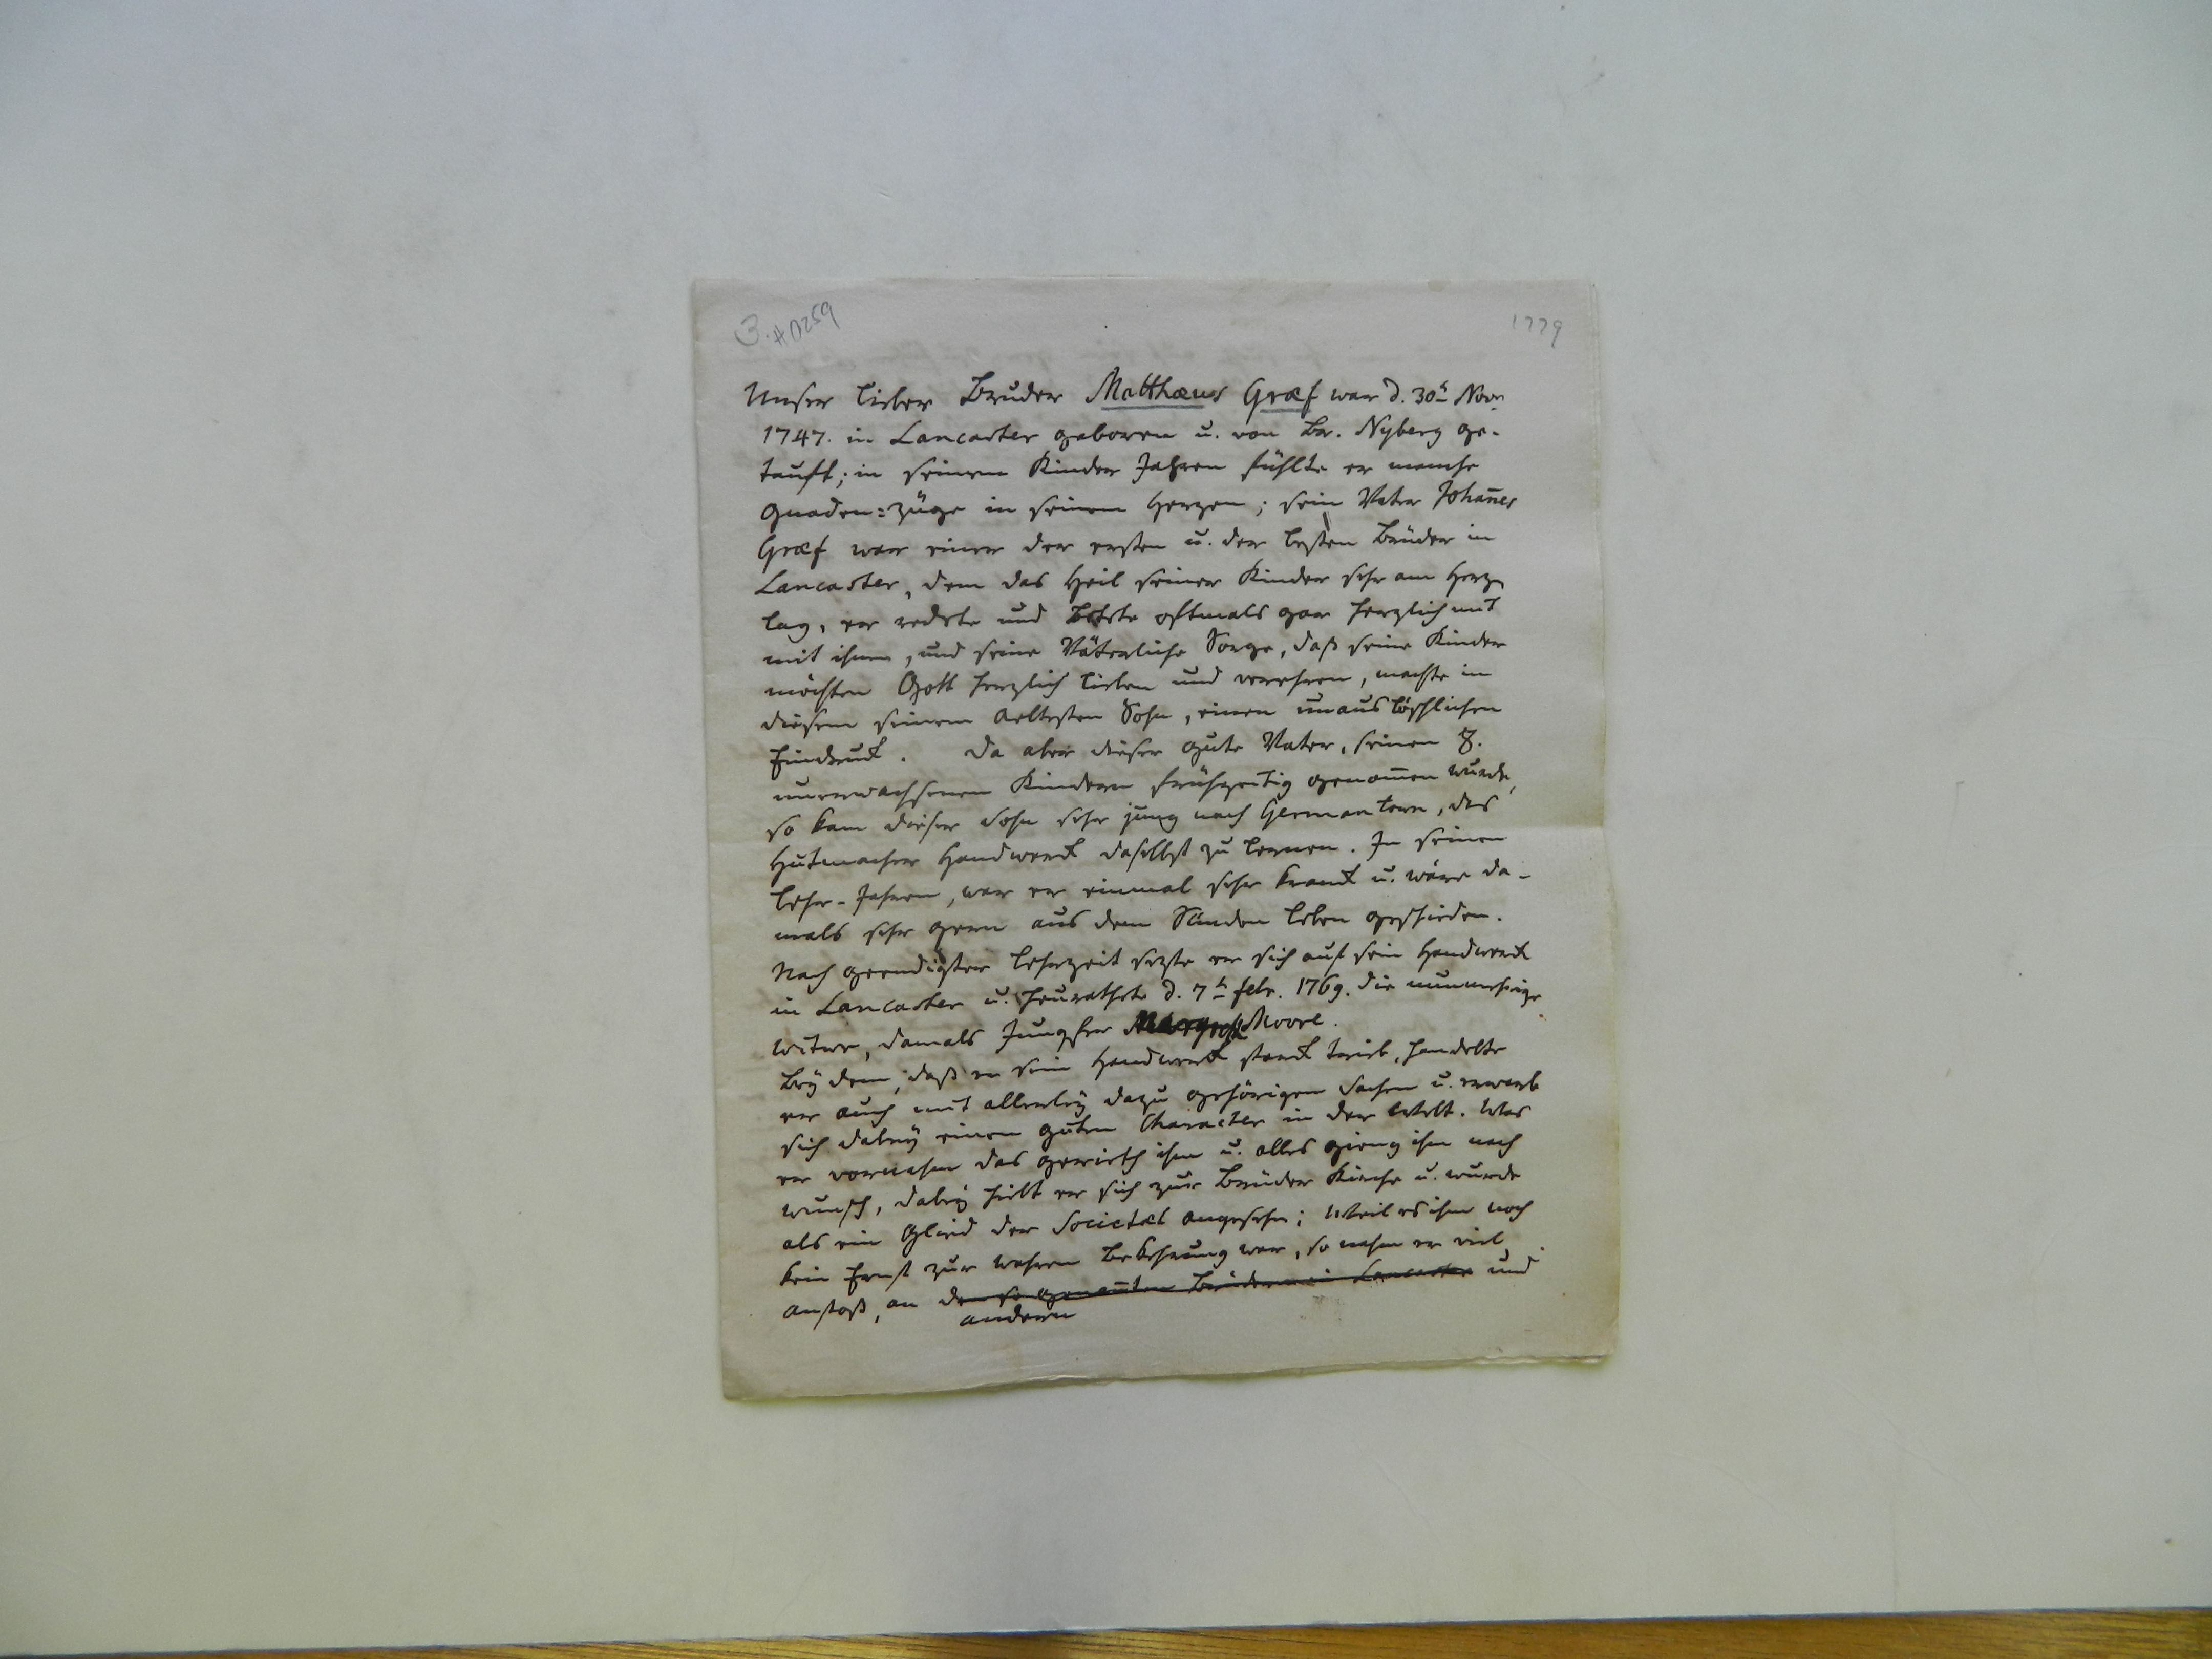 3. #D259
1779
Unser lieber Bruder Matthæus Græf war d. 30t Novr.
1747. in Lancaster geboren u. von Br. Nyberg ge-
tauft; in seinen Kinder Jahren fühlte er manche
Gnaden=züge in seinem Herzen; sein Vater Joha&#772;nes
Græf war einer der ersten u. der besten Brüder in
Lancaster, dem das Heil seiner Kinder sehr am Herzen
lag, er redete und betete oftmals gar herzlich mit
mit ihnen, und seine Väterliche Sorge, daß seine Kinder
möchten Gott herzlich lieben und verehren, machte in
diesem seinem aeltesten Sohn, einen unauslöschlichen
Eindruck. Da aber dieser gute Vater, seinen 8.
unerwachsenen Kindern frühzeitig geno&#772;men wurde,
so kam dieser Sohn sehr jung nach Germantown, das
Hutmacher Handwerck daselbst zu lernen. In seinen
Lehr-Jahren, war er einmal sehr kranck u. wäre da-
mals sehr gern aus dem Sünden leben geschieden.
Nach geendigter Lehrzeit sezte er sich auf sein Handwerck
in Lancaster u. heurathete d. 7t febr. 1769. die nunmehrige
Witwe, damals Jungfer Moore.
Bey dem, daß er sein Handwerck starck trieb, handelte
er auch mit allerley dazu gehörigen Sachen u. erwarb
sich dabey einen guten Character in der Welt. Was
er vornahm das gerieth ihm u. alles gieng ihm nach
wunsch, dabey hielt er sich zur Brüder Kirche u. wurde
als ein Glied der Societæt angesehn; Weil es ihm noch
kein Ernst zur wahren Bekehrung war, so nahm er viel
anstoß, an den so gena&#772;nten Brüdern in Lancaster und
andern